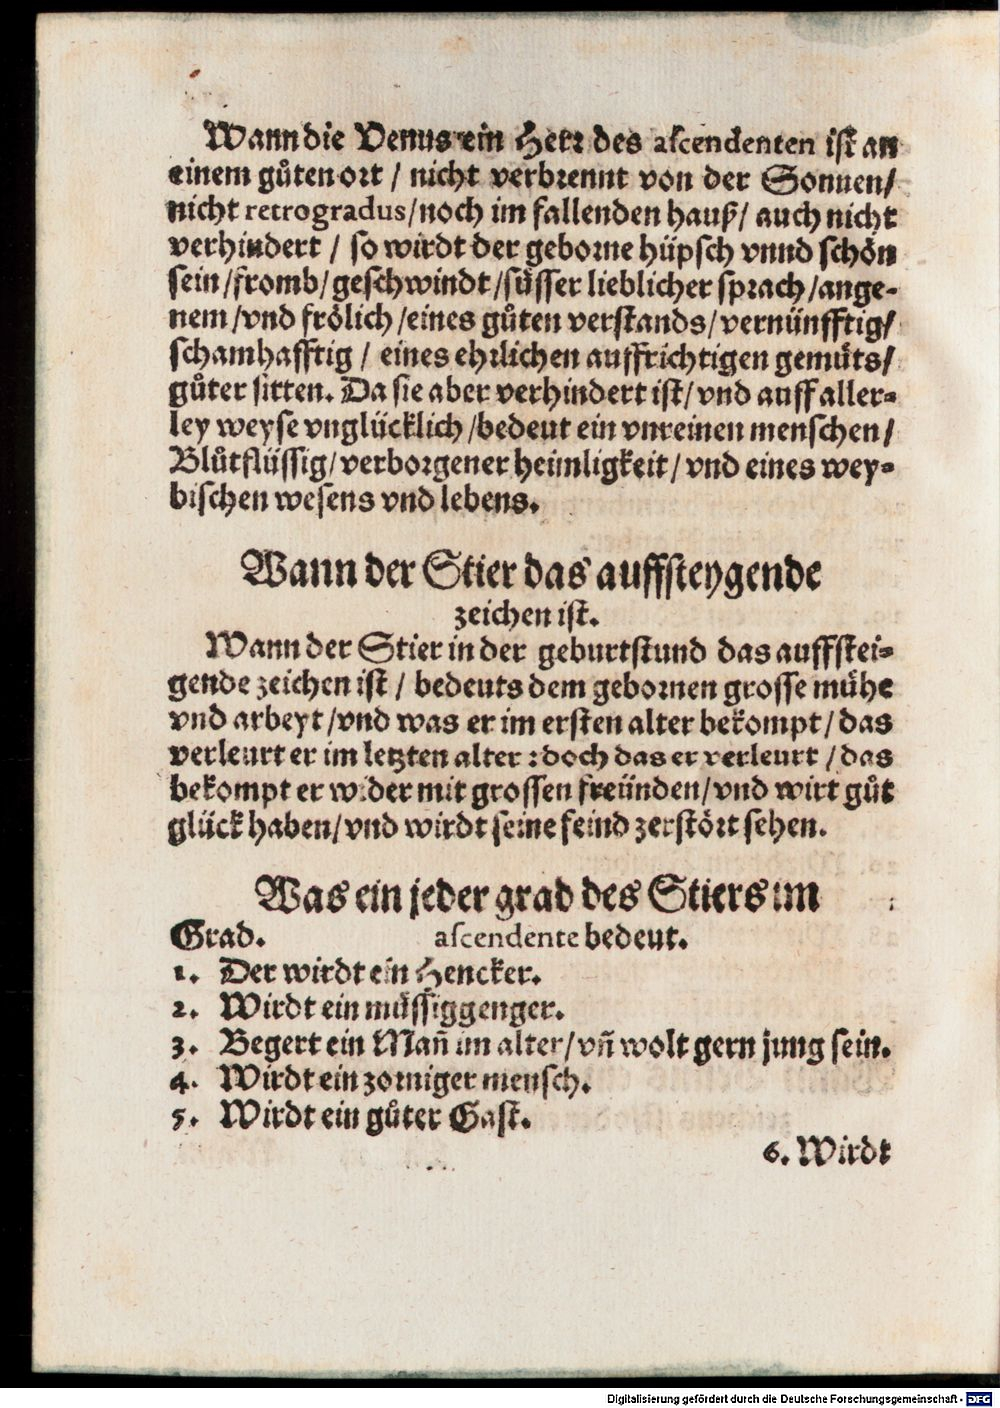 Wann die Venus ein Herr des ascendenten ist an
einem gůten ort / nicht verbrennt von der Sonnen/
nicht retrogradus/noch im fallenden hauß/ auch nicht
verhindert / so wirdt der geborne hüpsch vnnd schön
sein/fromb/geschwindt/süsser lieblicher sprach/ange-
nem/vnd frölich/eines gůten verstands/vernünfftig/
schamhafftig / eines ehrlichen auffrichtigen gemüts/
gůter sitten. Da sie aber verhindert ist/ vnd auff aller-
ley weyse vnglücklich/bedeut ein vnreinen menschen/
Blůtflüssig/verborgener heimligkeit/vnd eines wey-
bischen wesens vnd lebens.
Wann der Stier das auffsteygende
zeichen ist.
Wann der Stier in der geburtstund das auffstei-
gende zeichen ist / bedeuts dem gebornen grosse mühe
vnd arbeyt/vnd was er im ersten alter bekompt/das
verleurt er im letzten alter : doch das er verleurt /das
bekompt er wider mit grossen freünden/vnd wirt gůt
glück haben/vnd wirdt seine feind zerstört sehen.
Was ein jeder grad des Stiers im
Grad. ascendente bedeut.
1. Der wirdt ein Hencker.
2. Wirdt ein müssiggenger.
3. Begert ein Man̄ im alter/vn̄ wolt gern jung sein.
4. Wirdt ein zorniger mensch.
5. Wirdt ein gůter Gast.
6. Wirdt
Digitalisierung gefördert durch die Deutsche Forschungsgemeinschaft - DFG